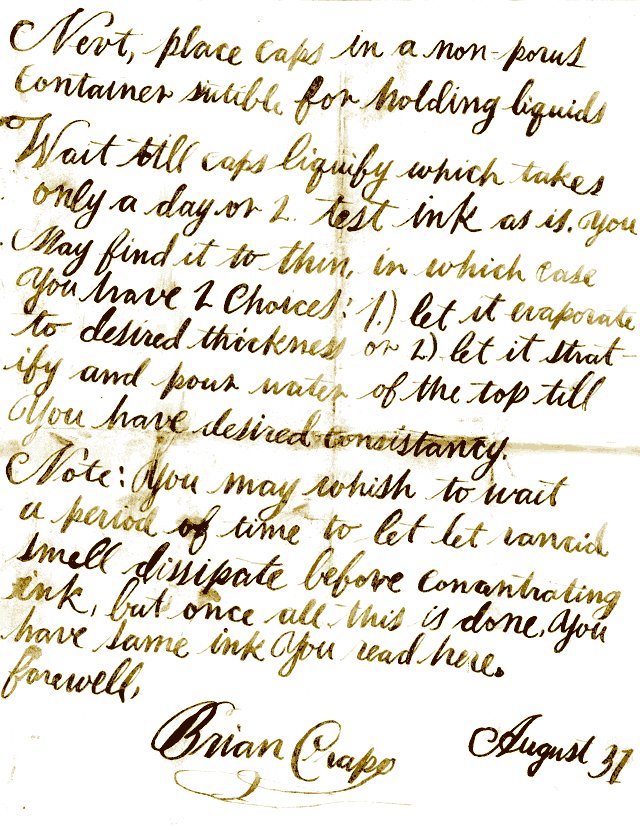 Next, place caps in a non-porus
container sutible for holding liquids
Wait till caps liquify which takes
only a day or 2. test ink as is. You
May find it to thin, in which case
You have 2 Choices: 1.) let it evaporate
to desired thickness or 2) let it strat-
ify and pour water of the top till
You have desired consistancy.
Note: You may whish to wait
a period of time to let let rancid
smell dissipate before conantrating
ink, but once all this is done, You
have same ink You read here.
farewell,
Brian Crapo August 31